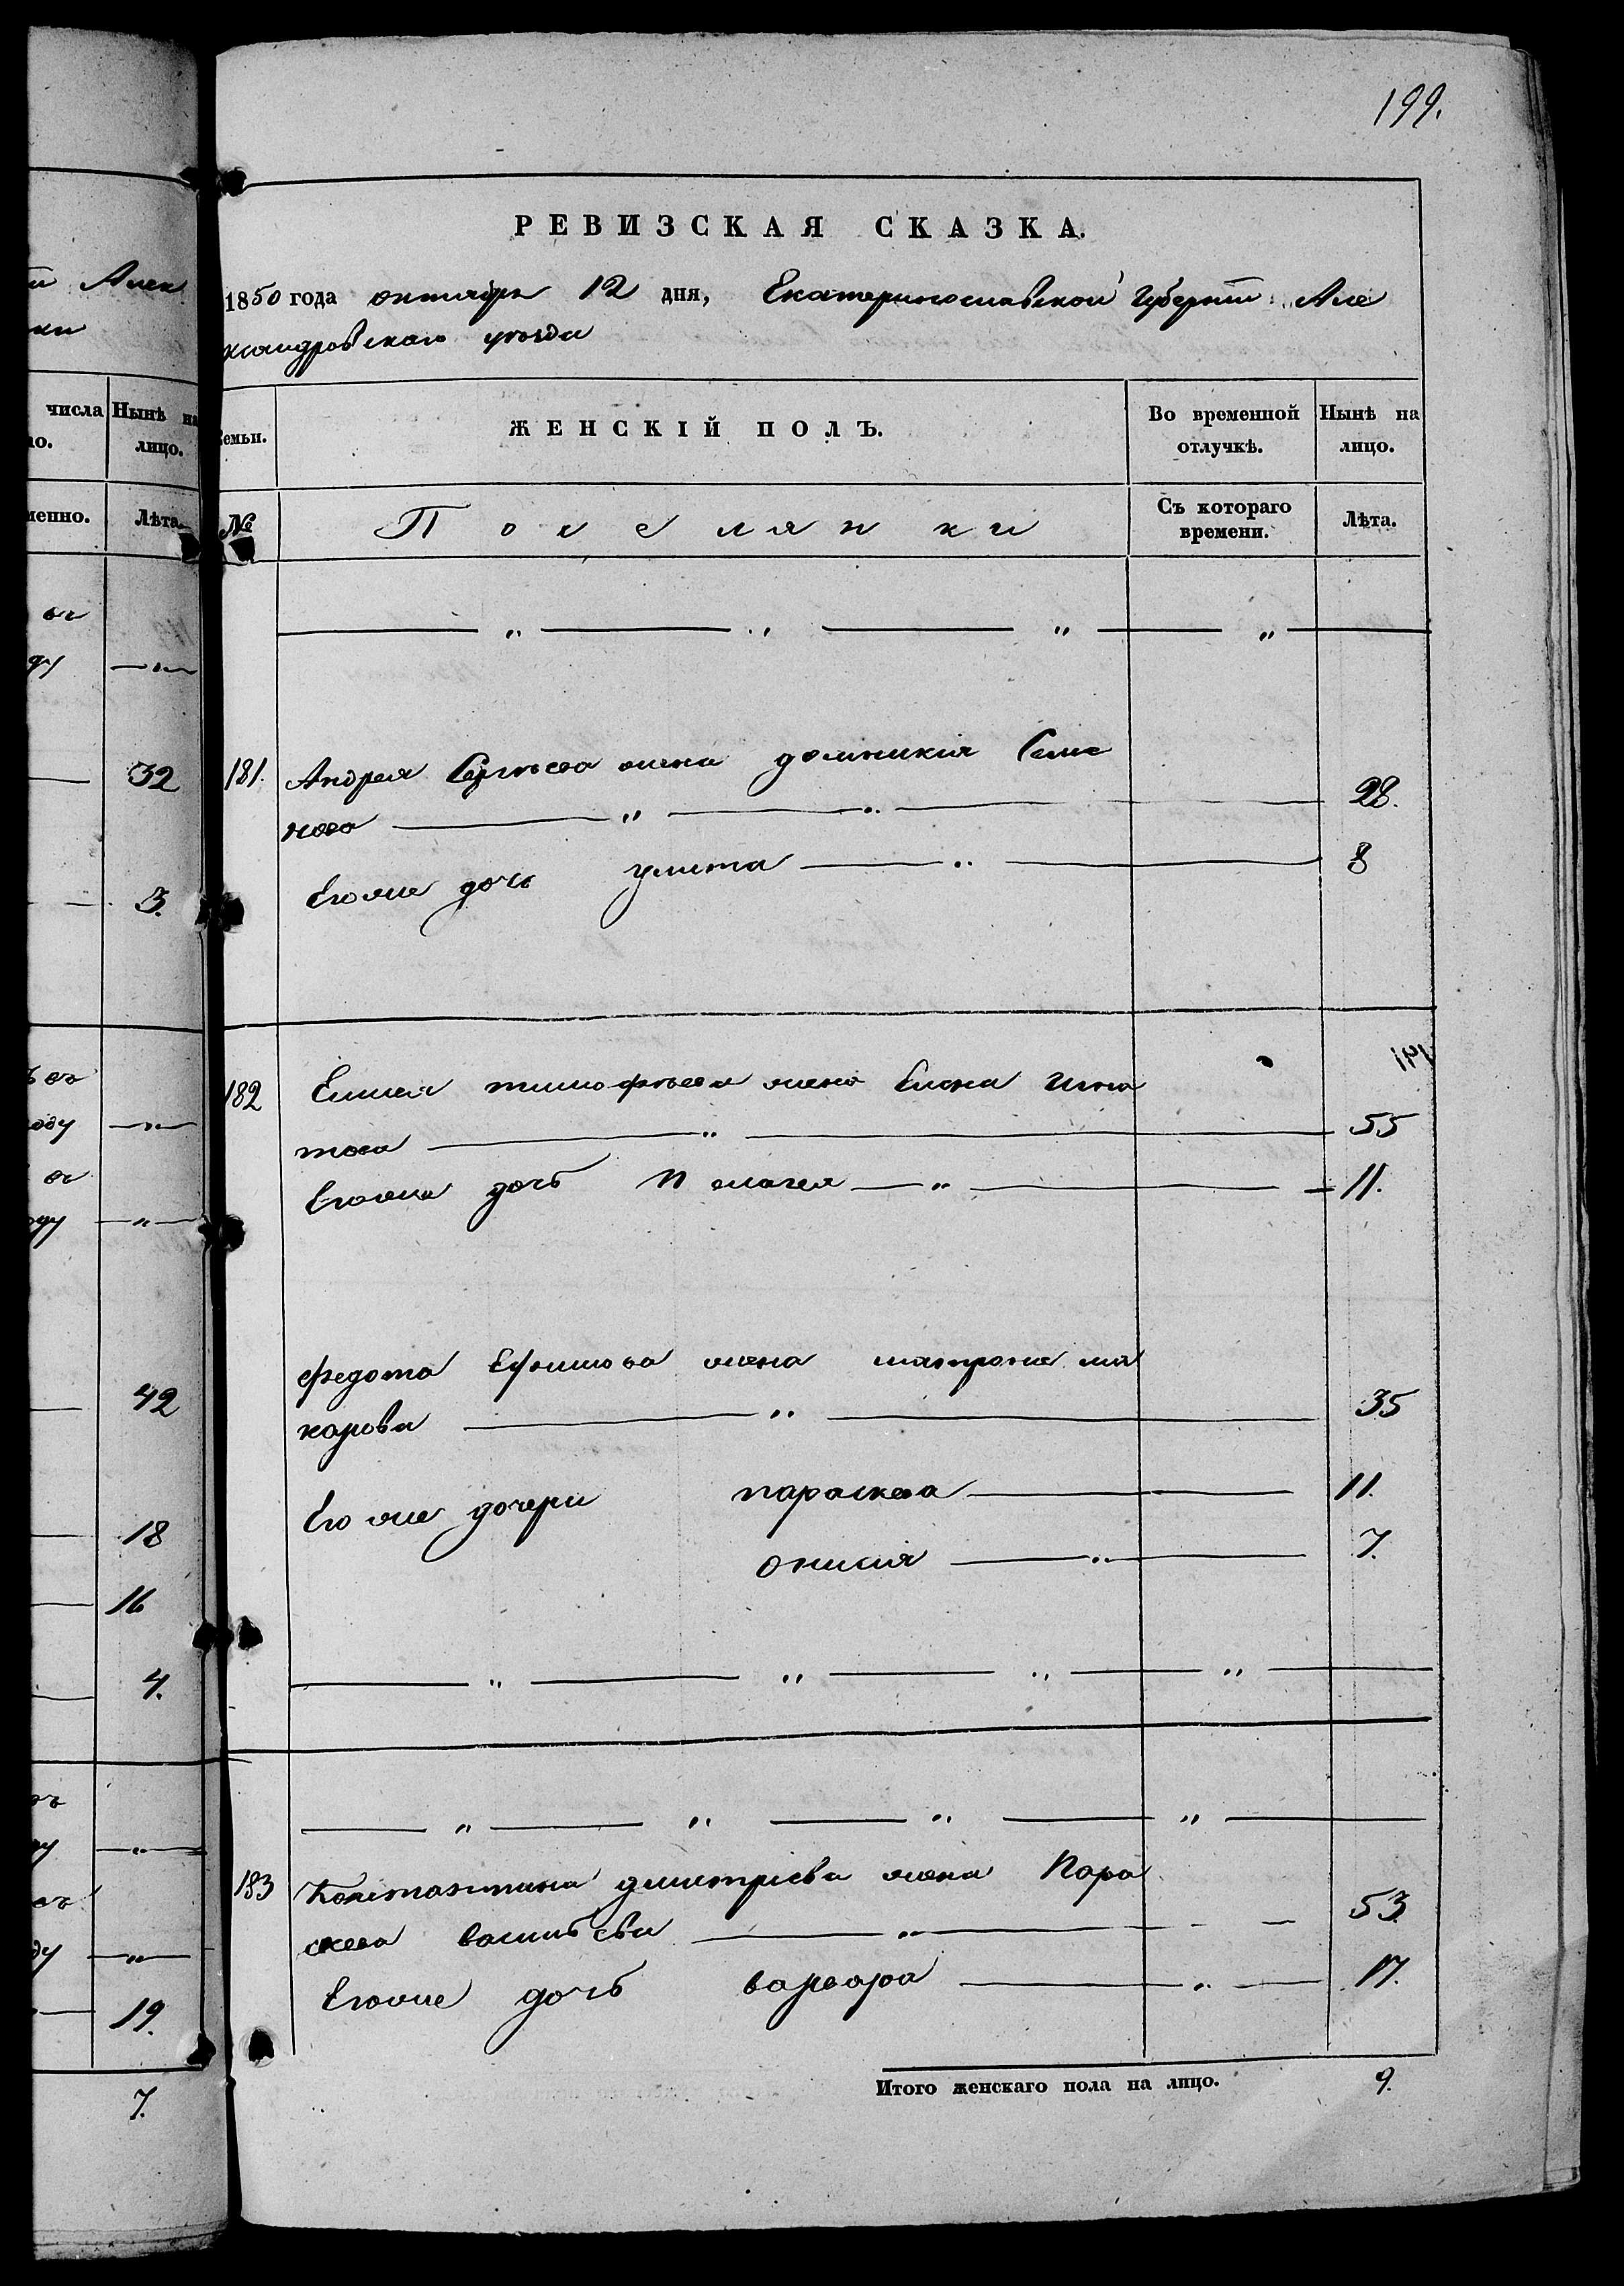 199.
РЕВИЗСКАЯ СКАЗКА.
1850 года октября 12 дня, Екатеринославской Губернии Але
ксандровскаго уѣзда
Семьи.
ЖЕНСКІЙ ПОЛЪ.
Во временной отлучкѣ.
Нынѣ на лицо.
№
Поселянки
Съ котораго времени.
Лѣта.
181. Андрея Сергѣева жена домникія Семе
нова 28.
Его же дочь улита 8
182 Емили тимофѣева жена Елена Игна
това 55
Егоже дочь Пелагея 11.
федота Ефимова жена матрона ма
карова 35
Его же дочери параскева 11.
онисія 7.
183 Константина дмитріева жена Пара
скева васильева 53
Егоже дочь варвара 17.
Итого женскаго пола на лицо. 9.
Алек
ки
числа
Нынѣ на
лицо.
Лѣта.
въ
ду
32
3.
въ
оду
въ
оду
42
18
16
4.
въ
ду
19.
7.